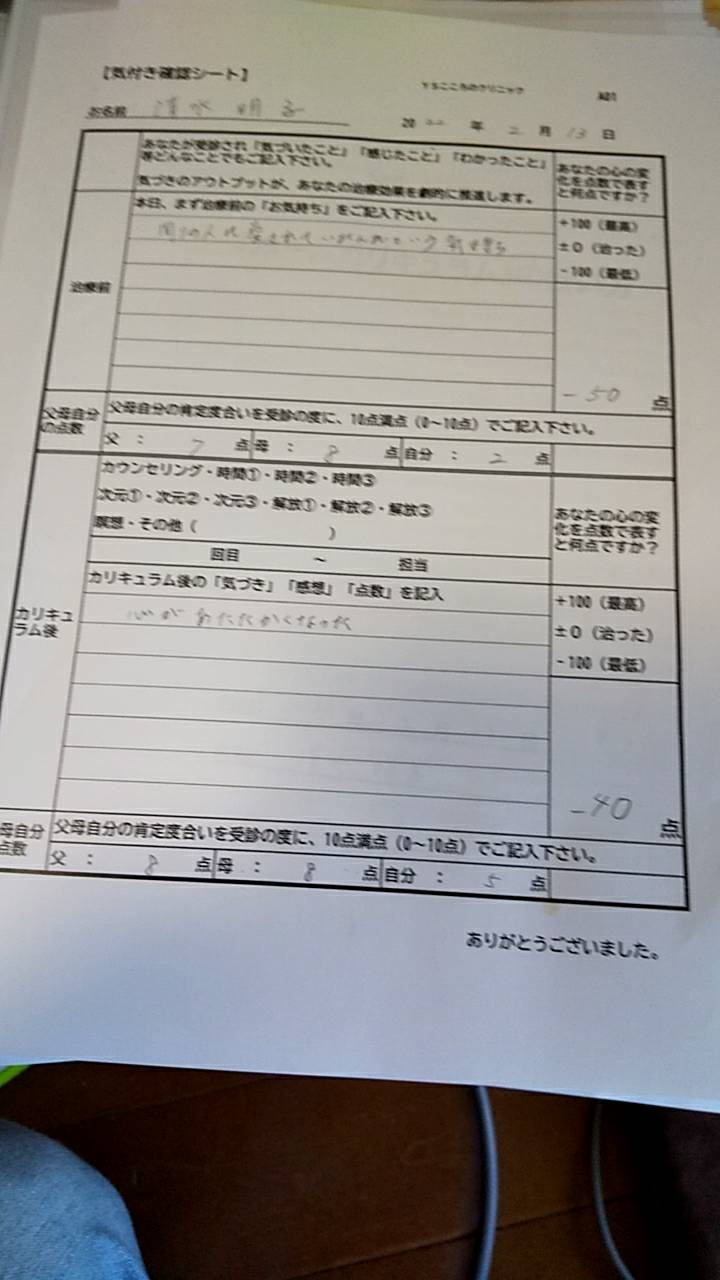 【気付き確認シート】
YSこころのクリニック
A01
お名前 清水 明子
2022年2月13日
あなたが受診され「気づいたこと」「感じたこと」「わかったこと」
等どんなことでもご記入下さい。
気づきのアウトプットが、あなたの治療効果を劇的に推進します。
あなたの心の変
化を点数で表す
と何点ですか？
治療前
本日、まず治療前の「お気持ち」をご記入下さい。
+100（最高）
±0（治った）
-100（最低）
-50 点
父母自分
の点数
父母自分の肯定度合いを受診の度に、10点満点（0～10点）でご記入下さい。
父：7点 母：8点 自分：2点
カリキュ
ラム後
カウンセリング・時間①・時間②・時間③
次元①・次元②・次元③・解放①・解放②・解放③
瞑想・その他（ ）
回目 ～ 担当
あなたの心の変
化を点数で表す
と何点ですか？
カリキュラム後の「気づき」「感想」「点数」を記入
心があたたかくなった
+100（最高）
±0（治った）
-100（最低）
-40 点
母自分
点数
父母自分の肯定度合いを受診の度に、10点満点（0～10点）でご記入下さい。
父：8点 母：8点 自分：5点
ありがとうございました。